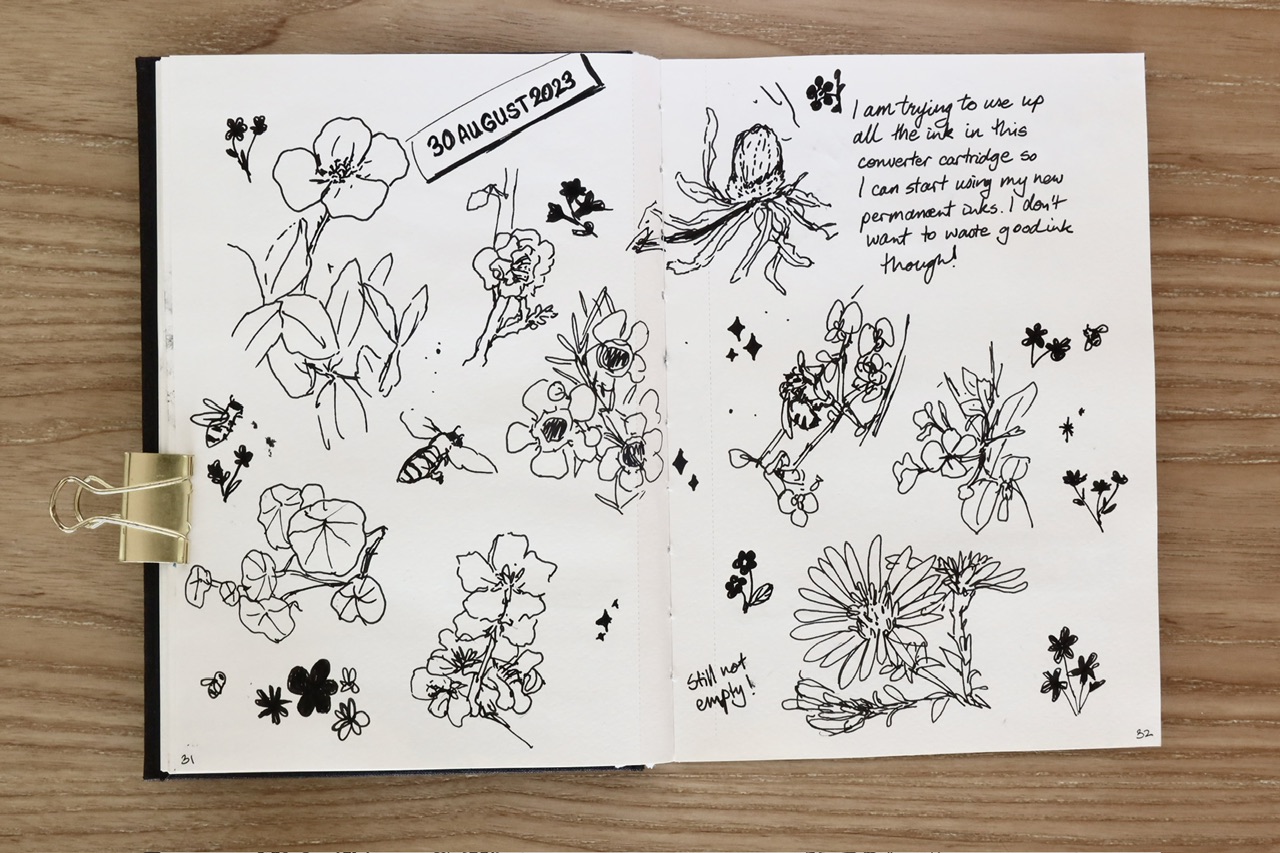 30 AUGUST 2023
I am trying to use up
all the ink in this
converter cartridge so
I can start using my new
permanent inks. I don't
want to waste good ink
though!
Still not
empty!
31
32